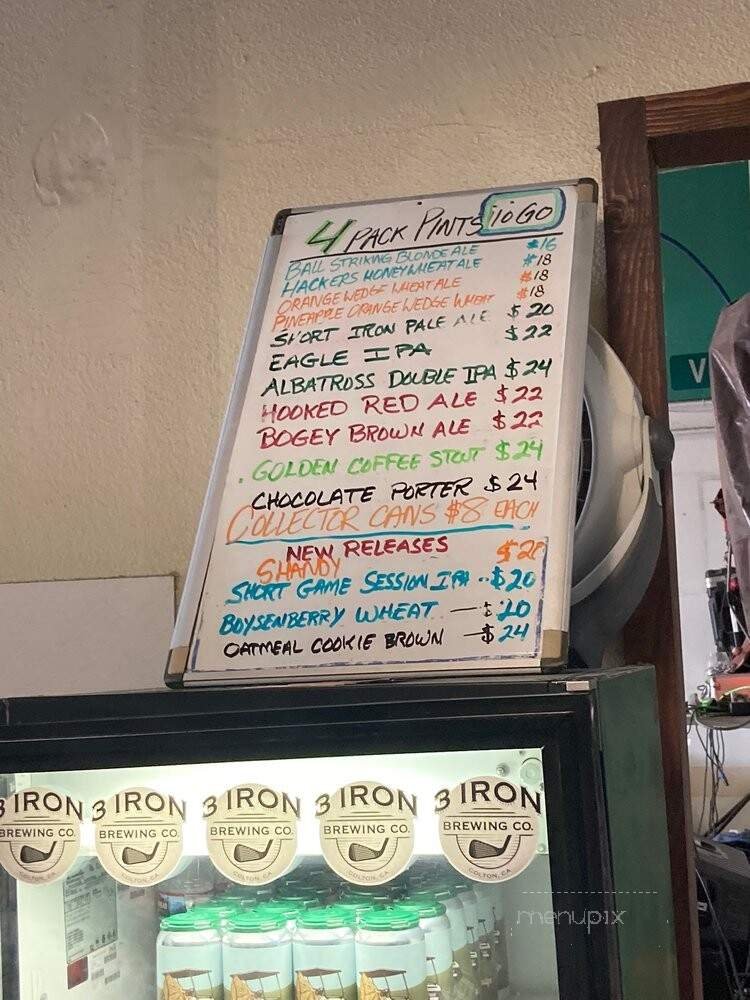 4 PACK PINTS to GO
BALL STRIKING BLONDE ALE $16
HACKERS HONEYWHEAT ALE $18
ORANGE WEDGE WHEAT ALE $18
PINEAPPLE ORANGE WEDGE WHEAT $18
SHORT IRON PALE ALE $20
EAGLE IPA $22
ALBATROSS DOUBLE IPA $24
HOOKED RED ALE $22
BOGEY BROWN ALE $22
GOLDEN COFFEE STOUT $24
CHOCOLATE PORTER $24
COLLECTOR CANS $8 EACH
NEW RELEASES
SHANDY $20
SHORT GAME SESSION IPA $20
BOYSENBERRY WHEAT — $20
OATMEAL COOKIE BROWN — $24
V
3 IRON 3 IRON 3 IRON 3 IRON 3 IRON
BREWING CO. BREWING CO. BREWING CO. BREWING CO. BREWING CO.
COLTON, CA COLTON, CA COLTON, CA COLTON, CA COLTON, CA
menupix